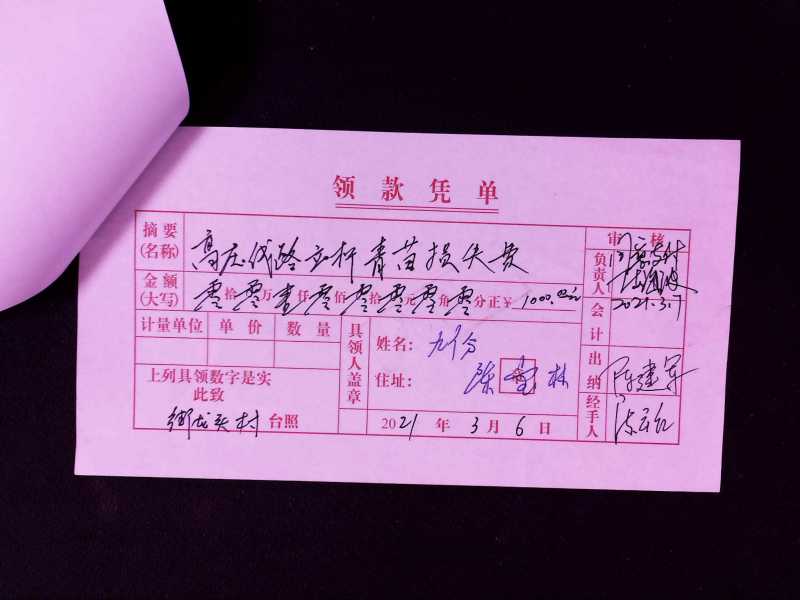 领款凭单
摘要(名称) 高庄线路立杆青苗损失费
审核
负责人 同意支付
2021.3.7
金额(大写) 零拾零万壹仟零佰零拾零元零角零分正￥1000.00元
会计
计量单位 单价 数量
具领人盖章
姓名: 九个分
住址: 陈宝林
出纳 陈建军
上列具领数字是实
此致
御龙头村 台照
2021年3月6日
经手人